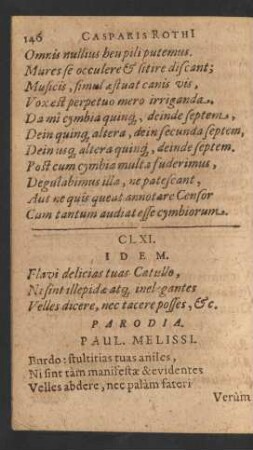 146 CASPARIS ROTHI
Omnis nullius heu pili putemus.
Mures se occulere & sitire discant;
Musicis, simul æstuat canis vis,
Vox est perpetuo mero irriganda.
Da mi cymbia quinq, deinde septem,
Dein quinq, altera, dein secunda septem,
Dein usq, altera quinq, deinde septem.
Post cum cymbia multa fuderimus,
Degulabimus illa, ne patescant,
Aut ne quis queat annotare Censor
Cum tantum audiat esse cymbiorum.
CLXI.
IDEM.
Flavi delicias tuas Catullo,
Ni sint illepidæ atq, inelegantes
Velles dicere, nec tacere posses, &c.
PARODIA.
PAUL. MELISSI.
Burdo: stultitias tuas aniles,
Ni sint tàm manifestæ & evidentes
Velles abdere, nec palàm fateri
Verùm